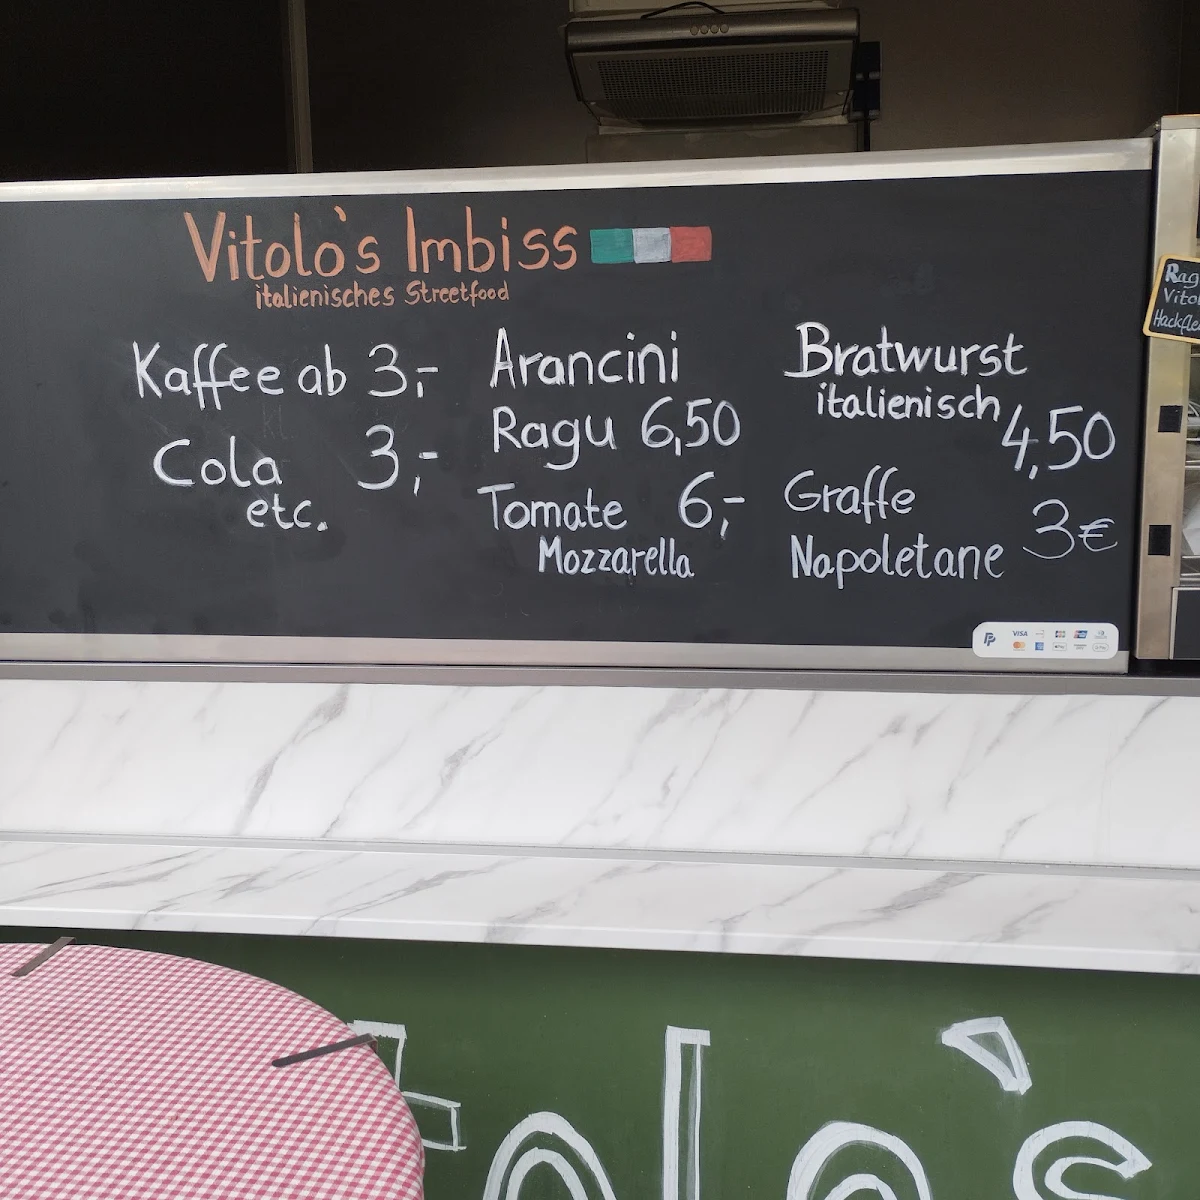 Vitolo`s Imbiss
italienisches Streetfood
Kaffee ab 3,-
Cola 3,-
etc.
Arancini
Ragu 6,50
Tomate 6,-
Mozzarella
Bratwurst
italienisch
4,50
Graffe
Napoletane 3€
VISA
Rag
Vitol
Hackfle
tolo`s